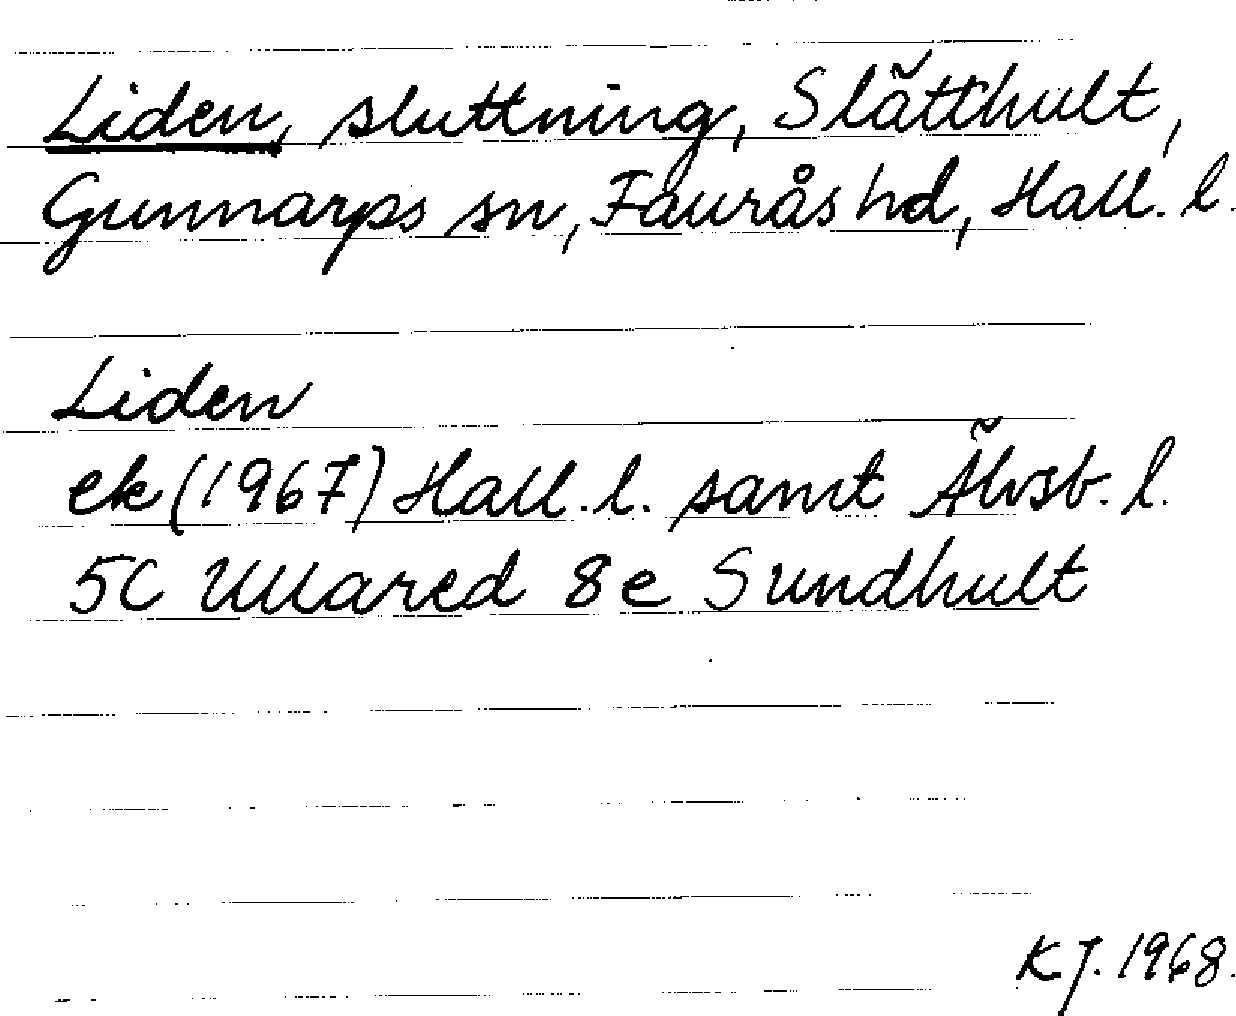 Liden, sluttning, Slätthult,
Gunnarps sn, Faurås hd, Hall. l.
Liden
ek (1967) Hall. l. samt Älvsb. l.
5C Ullared 8e Sundhult
K J. 1968.